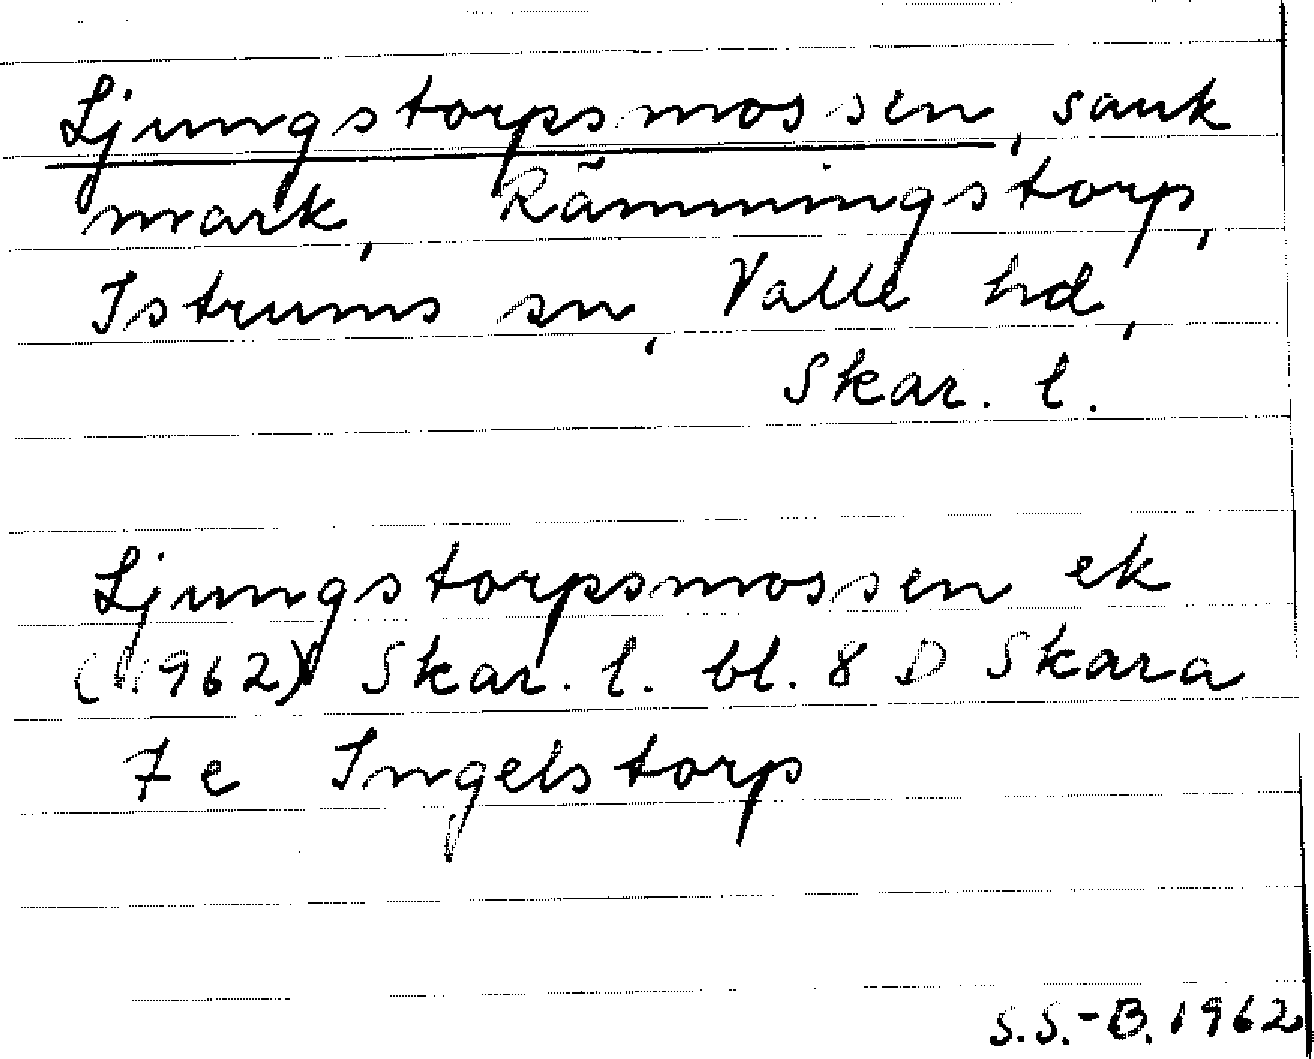 Ljungstorpsmossen, sank
mark, Rämningstorp,
Istrums sn, Valle hd,
Skar. l.
Ljungstorpsmossen ek
(1962) Skar. l. bl. 8 D Skara
7 e Ingelstorp
S.S.-B. 1962